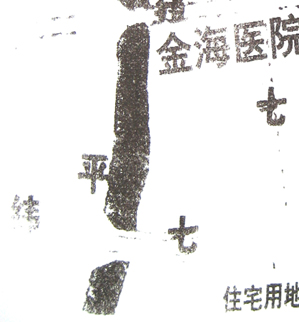 二
金海医院
七
平
纬
七
住宅用地